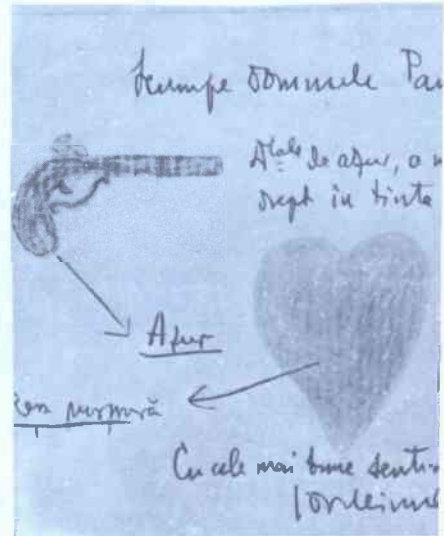 Scumpe Domnule Pa
de azur, o
drept în ținta
Azur
purpură
Cu cele mai bune senti